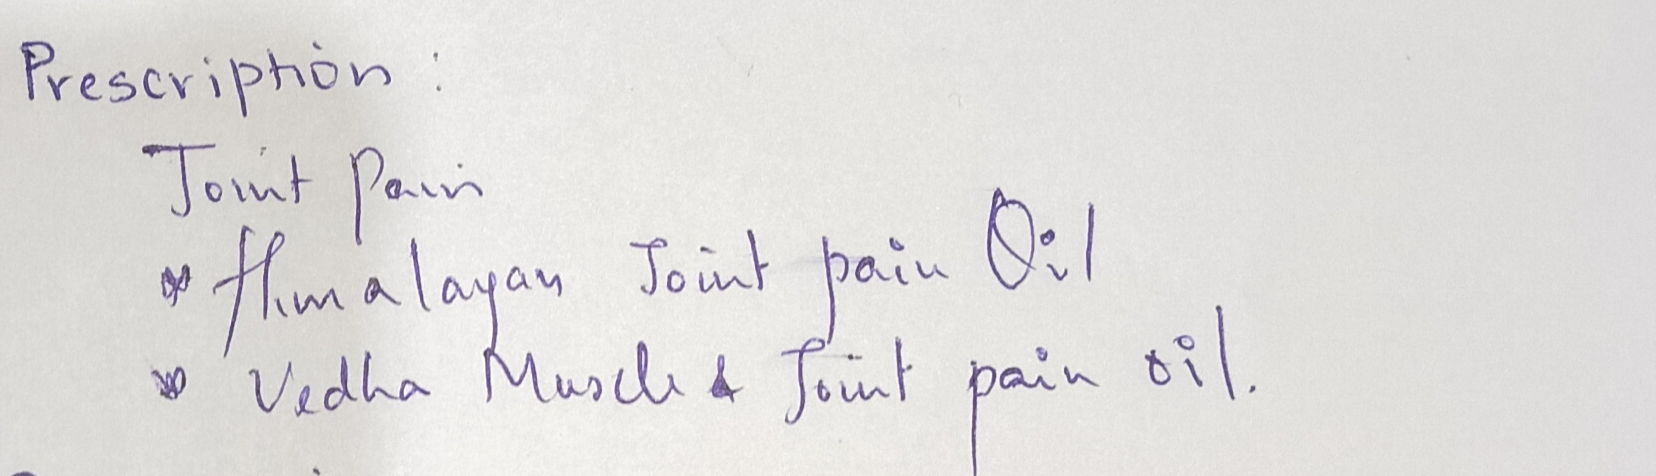 Prescription :
Joint Pain
* Himalayan Joint pain Oil
* Vedha Muscle & Joint pain oil.